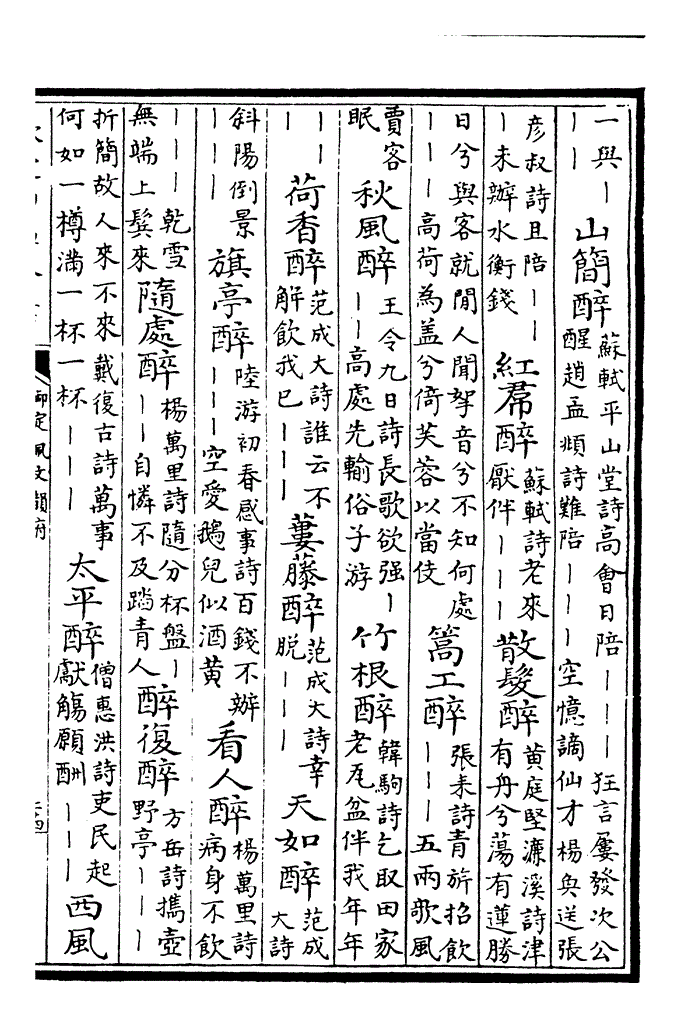 一與丨
丨丨
山簡醉
蘇軾平山堂詩高會日陪丨丨丨狂言屢發次公
醒趙孟頫詩難陪丨丨丨空憶謫仙才楊奐送張
彥叔詩且陪丨丨
丨未辦水衡錢
紅帬醉
蘇軾詩老來
厭伴丨丨丨
散髮醉
黃庭堅濂溪詩津
有舟兮蕩有蓮勝
日兮與客就閒人聞拏音兮不知何處
丨丨丨高荷為蓋兮倚芙蓉以當伎
篙工醉
張耒詩青旂招飲
丨丨丨五兩歌風
賈客
眠
秋風醉
王令九日詩長歌欲强丨
丨丨高處先輸俗子游
竹根醉
韓駒詩乞取田家
老瓦盆伴我年年
丨丨
丨
荷香醉
范成大詩誰云不
解飲我已丨丨丨
蔞藤醉
范成大詩幸
脫丨丨丨
天如醉
范成
大詩
斜陽倒景
丨丨丨
旗亭醉
陸游初春感事詩百錢不辦
丨丨丨空愛鵝兒似酒黃
看人醉
楊萬里詩
病身不飲
丨丨丨乾雪
無端上鬢來
隨處醉
楊萬里詩隨分杯盤丨
丨丨自憐不及踏青人
醉復醉
方岳詩攜壺
野亭丨丨丨
折簡故人來不來戴復古詩萬事
何如一樽滿一杯一杯丨丨丨
太平醉
僧惠洪詩吏民起
獻觴願酬丨丨丨
西風
御定佩文韻府